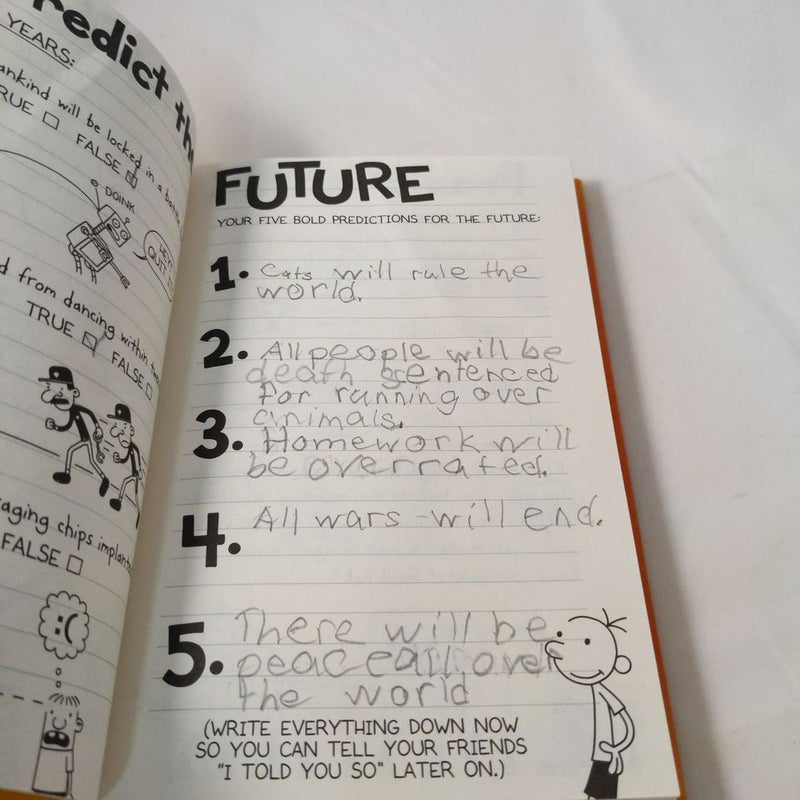 redict th
YEARS:
ankind will be locked in a
RUE FALSE
DOINK
HEY!
QUIT
d from dancing within
TRUE FALSE
aging chips implant
FALSE
FUTURE
YOUR FIVE BOLD PREDICTIONS FOR THE FUTURE:
1. Cats will rule the
world.
2. All people will be
death sentenced
for running over
animals.
3. Homework will
be overrated.
4. All wars will end.
5. There will be
peace all over
the world
(WRITE EVERYTHING DOWN NOW
SO YOU CAN TELL YOUR FRIENDS
"I TOLD YOU SO" LATER ON.)